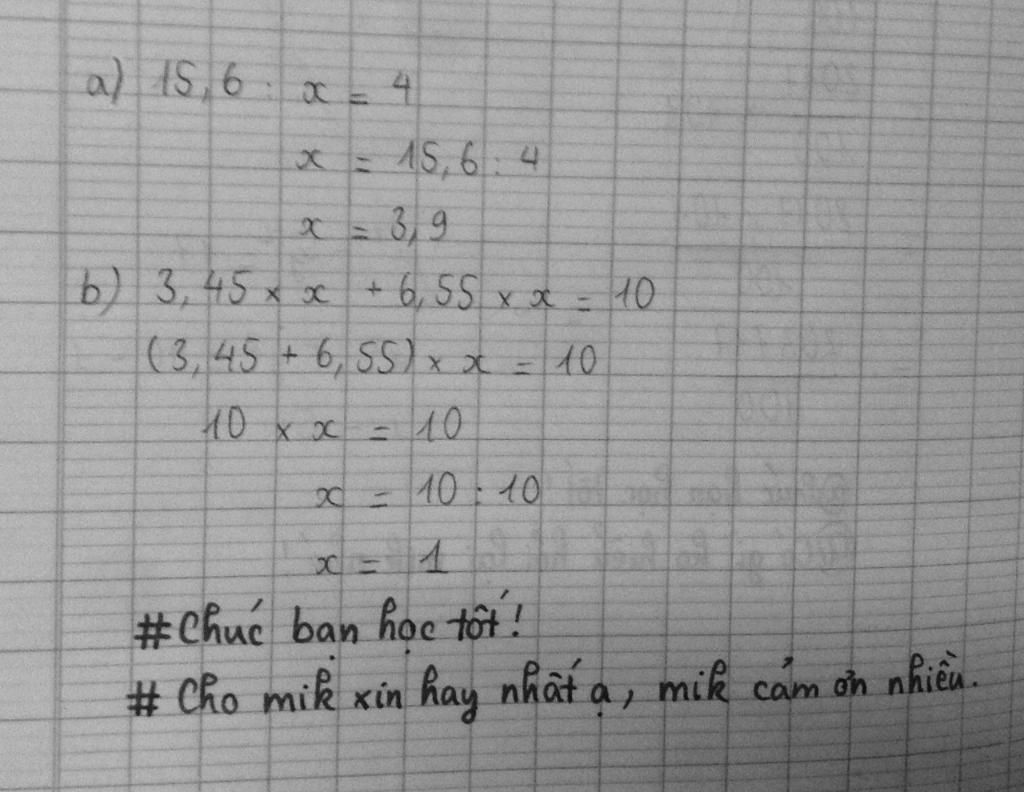 a) 15,6 : x = 4
x = 15,6 : 4
x = 3,9
b) 3,45 × x + 6,55 × x = 10
(3,45 + 6,55) × x = 10
10 × x = 10
x = 10 : 10
x = 1
# Chúc bạn học tốt!
# Cho mik xin hay nhất ạ, mik cảm ơn nhiều.